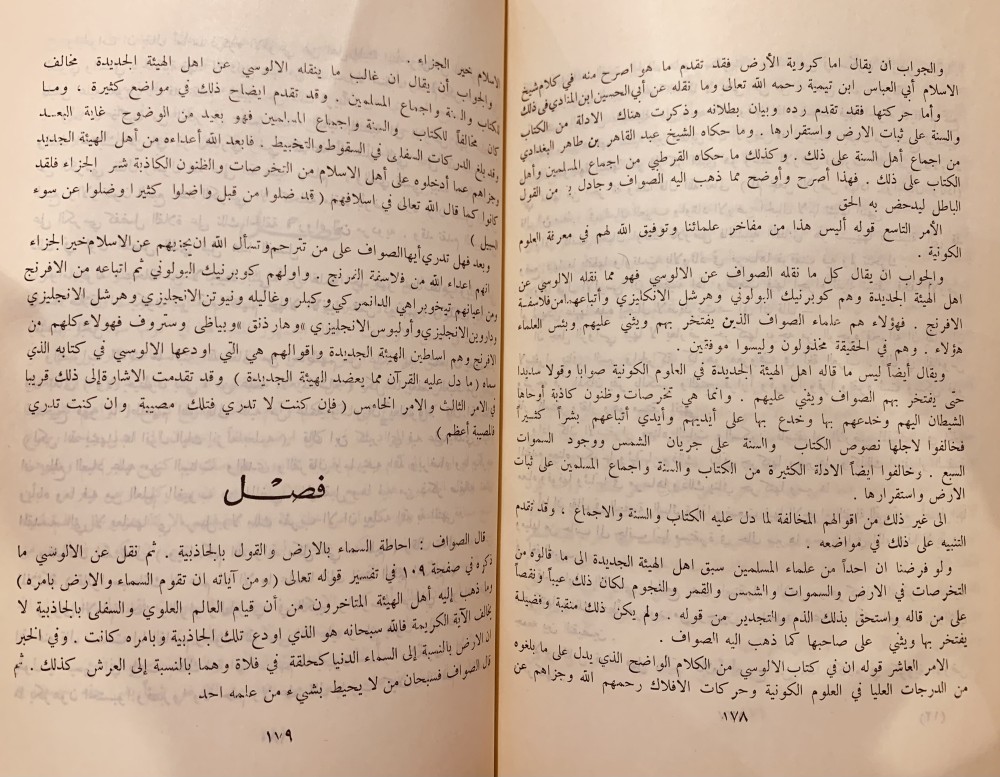 والجواب ان يقال اما كروية الأرض فقد تقدم ما هو اصرح منه في كلام شيخ
الاسلام أبي العباس ابن تيمية رحمه الله تعالى وما نقله عن أبي الحسين ابن المنادي في ذلك
وأما حركتها فقد تقدم رده وبيان بطلانه وذكرت هناك الادلة من الكتاب
والسنة على ثبات الارض واستقرارها . وما حكاه الشيخ عبد القاهر بن طاهر البغدادي
من اجماع أهل السنة على ذلك . وكذلك ما حكاه القرطبي من اجماع المسلمين وأهل
الكتاب على ذلك . فهذا أصرح وأوضح مما ذهب اليه الصواف وجادل به من القول
الباطل ليدحض به الحق
الأمر التاسع قوله أليس هذا من مفاخر علمائنا وتوفيق الله لهم في معرفة العلوم
الكونية .
والجواب ان يقال كل ما نقله الصواف عن الالوسي فهو مما نقله الالوسي عن
اهل الهيئة الجديدة وهم كوبرنيك البولوني وهرشل الانكليزي وأتباعهما من فلاسفة
الافرنج . فهؤلاء هم علماء الصواف الذين يفتخر بهم ويثني عليهم وبئس العلماء
هؤلاء . وهم في الحقيقة مخذولون وليسوا موفقين .
ويقال أيضاً ليس ما قاله اهل الهيئة الجديدة في العلوم الكونية صوابا وقولا سديدا
حتى يفتخر بهم الصواف ويثني عليهم . وانما هي تخرصات وظنون كاذبة أوحاها
الشيطان اليهم وخدعهم بها وخدع بها على أيديهم وأيدي أتباعهم بشراً كثيراً
فخالفوا لاجلها نصوص الكتاب والسنة على جريان الشمس ووجود السموات
السبع . وخالفوا ايضاً الادلة الكثيرة من الكتاب والسنة واجماع المسلمين على ثبات
الارض واستقرارها .
الى غير ذلك من اقوالهم المخالفة لما دل عليه الكتاب والسنة والاجماع ، وقد تقدم
التنبيه على ذلك في مواضعه .
ولو فرضنا ان احداً من علماء المسلمين سبق اهل الهيئة الجديدة الى ما قالوه من
التخرصات في الارض والسموات والشمس والقمر والنجوم لكان ذلك عيباً ونقصاً
على من قاله واستحق بذلك الذم والتجدير من قوله . ولم يكن ذلك منقبة وفضيلة
يفتخر بها ويثني على صاحبها كما ذهب اليه الصواف .
الامر العاشر قوله ان في كتاب الالوسي من الكلام الواضح الذي يدل على ما بلغوه
من الدرجات العليا في العلوم الكونية وحركات الافلاك رحمهم الله وجزاهم عن
١٧٨
الاسلام خير الجزاء .
والجواب أن يقال ان غالب ما ينقله الالوسي عن اهل الهيئة الجديدة مخالف
للكتاب والسنة واجماع المسلمين . وقد تقدم ايضاح ذلك في مواضع كثيرة ، وما
كان مخالفاً للكتاب والسنة واجماع المسلمين فهو بعيد من الوضوح غاية البعد
وقد بلغ الدركات السفلى في السقوط والتخبيط . فابعد الله أعداءه من أهل الهيئة الجديد
وجزاهم عما أدخلوه على أهل الاسلام من التخرصات والظنون الكاذبة شر الجزاء فلقد
كانوا كما قال الله تعالى في اسلافهم ( قد ضلوا من قبل واضلوا كثيرا وضلوا عن سوء
السبيل )
وبعد فهل تدري أيها الصواف على من تترحم وتسأل الله ان يجزيهم عن الاسلام خير الجزاء
انهم اعداء الله من فلاسفة الفرنج . واولهم كوبرنيك البولوني ثم اتباعه من الافرنج
ومن اعيانهم تيخوبراهي الدانمركي وكبلر وغاليله ونيوتن الانجليزي وهرشل الانجليزي
وداروين الانجليزي وأولبوس الانجليزي «وهاردنق »وبياظى وستروف فهولاء كلهم من
الافرنج وهم اساطين الهيئة الجديدة واقوالهم هي التي اودعها الالوسي في كتابه الذي
سماه ( ما دل عليه القرآن مما يعضد الهيئة الجديدة ) وقد تقدمت الاشارة إلى ذلك قريبا
في الامر الثالث والامر الخامس ( فإن كنت لا تدري فتلك مصيبة وان كنت تدري
فالمصيبة أعظم )
فصل
قال الصواف : احاطة السماء بالارض والقول بالجاذبية . ثم نقل عن الالوسي ما
ذكره في صفحة ١٠٩ في تفسير قوله تعالى ( ومن آياته ان تقوم السماء والارض بامره )
وما ذهب إليه أهل الهيئة المتاخرون من أن قيام العالم العلوي والسفلى بالجاذبية لا
يخالف الآية الكريمة فالله سبحانه هو الذي اودع تلك الجاذبية وبامره كانت . وفي الخبر
ان الارض بالنسبة إلى السماء الدنيا كحلقة في فلاة وهما بالنسبة إلى العرش كذلك . ثم
قال الصواف فسبحان من لا يحيط بشيء من علمه احد .
١٧٩